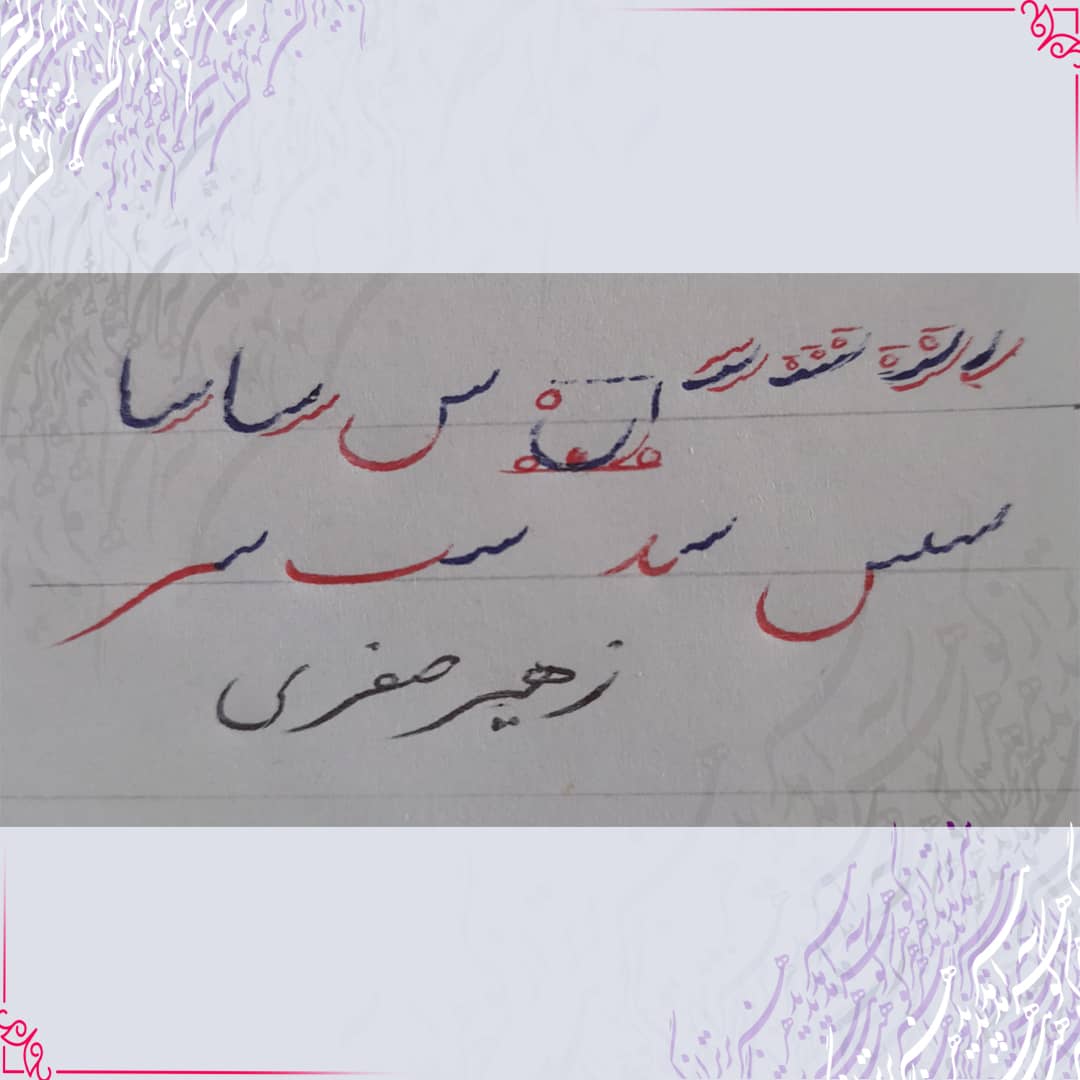 س سا سا
سس سد سب سر
زهیر صفری